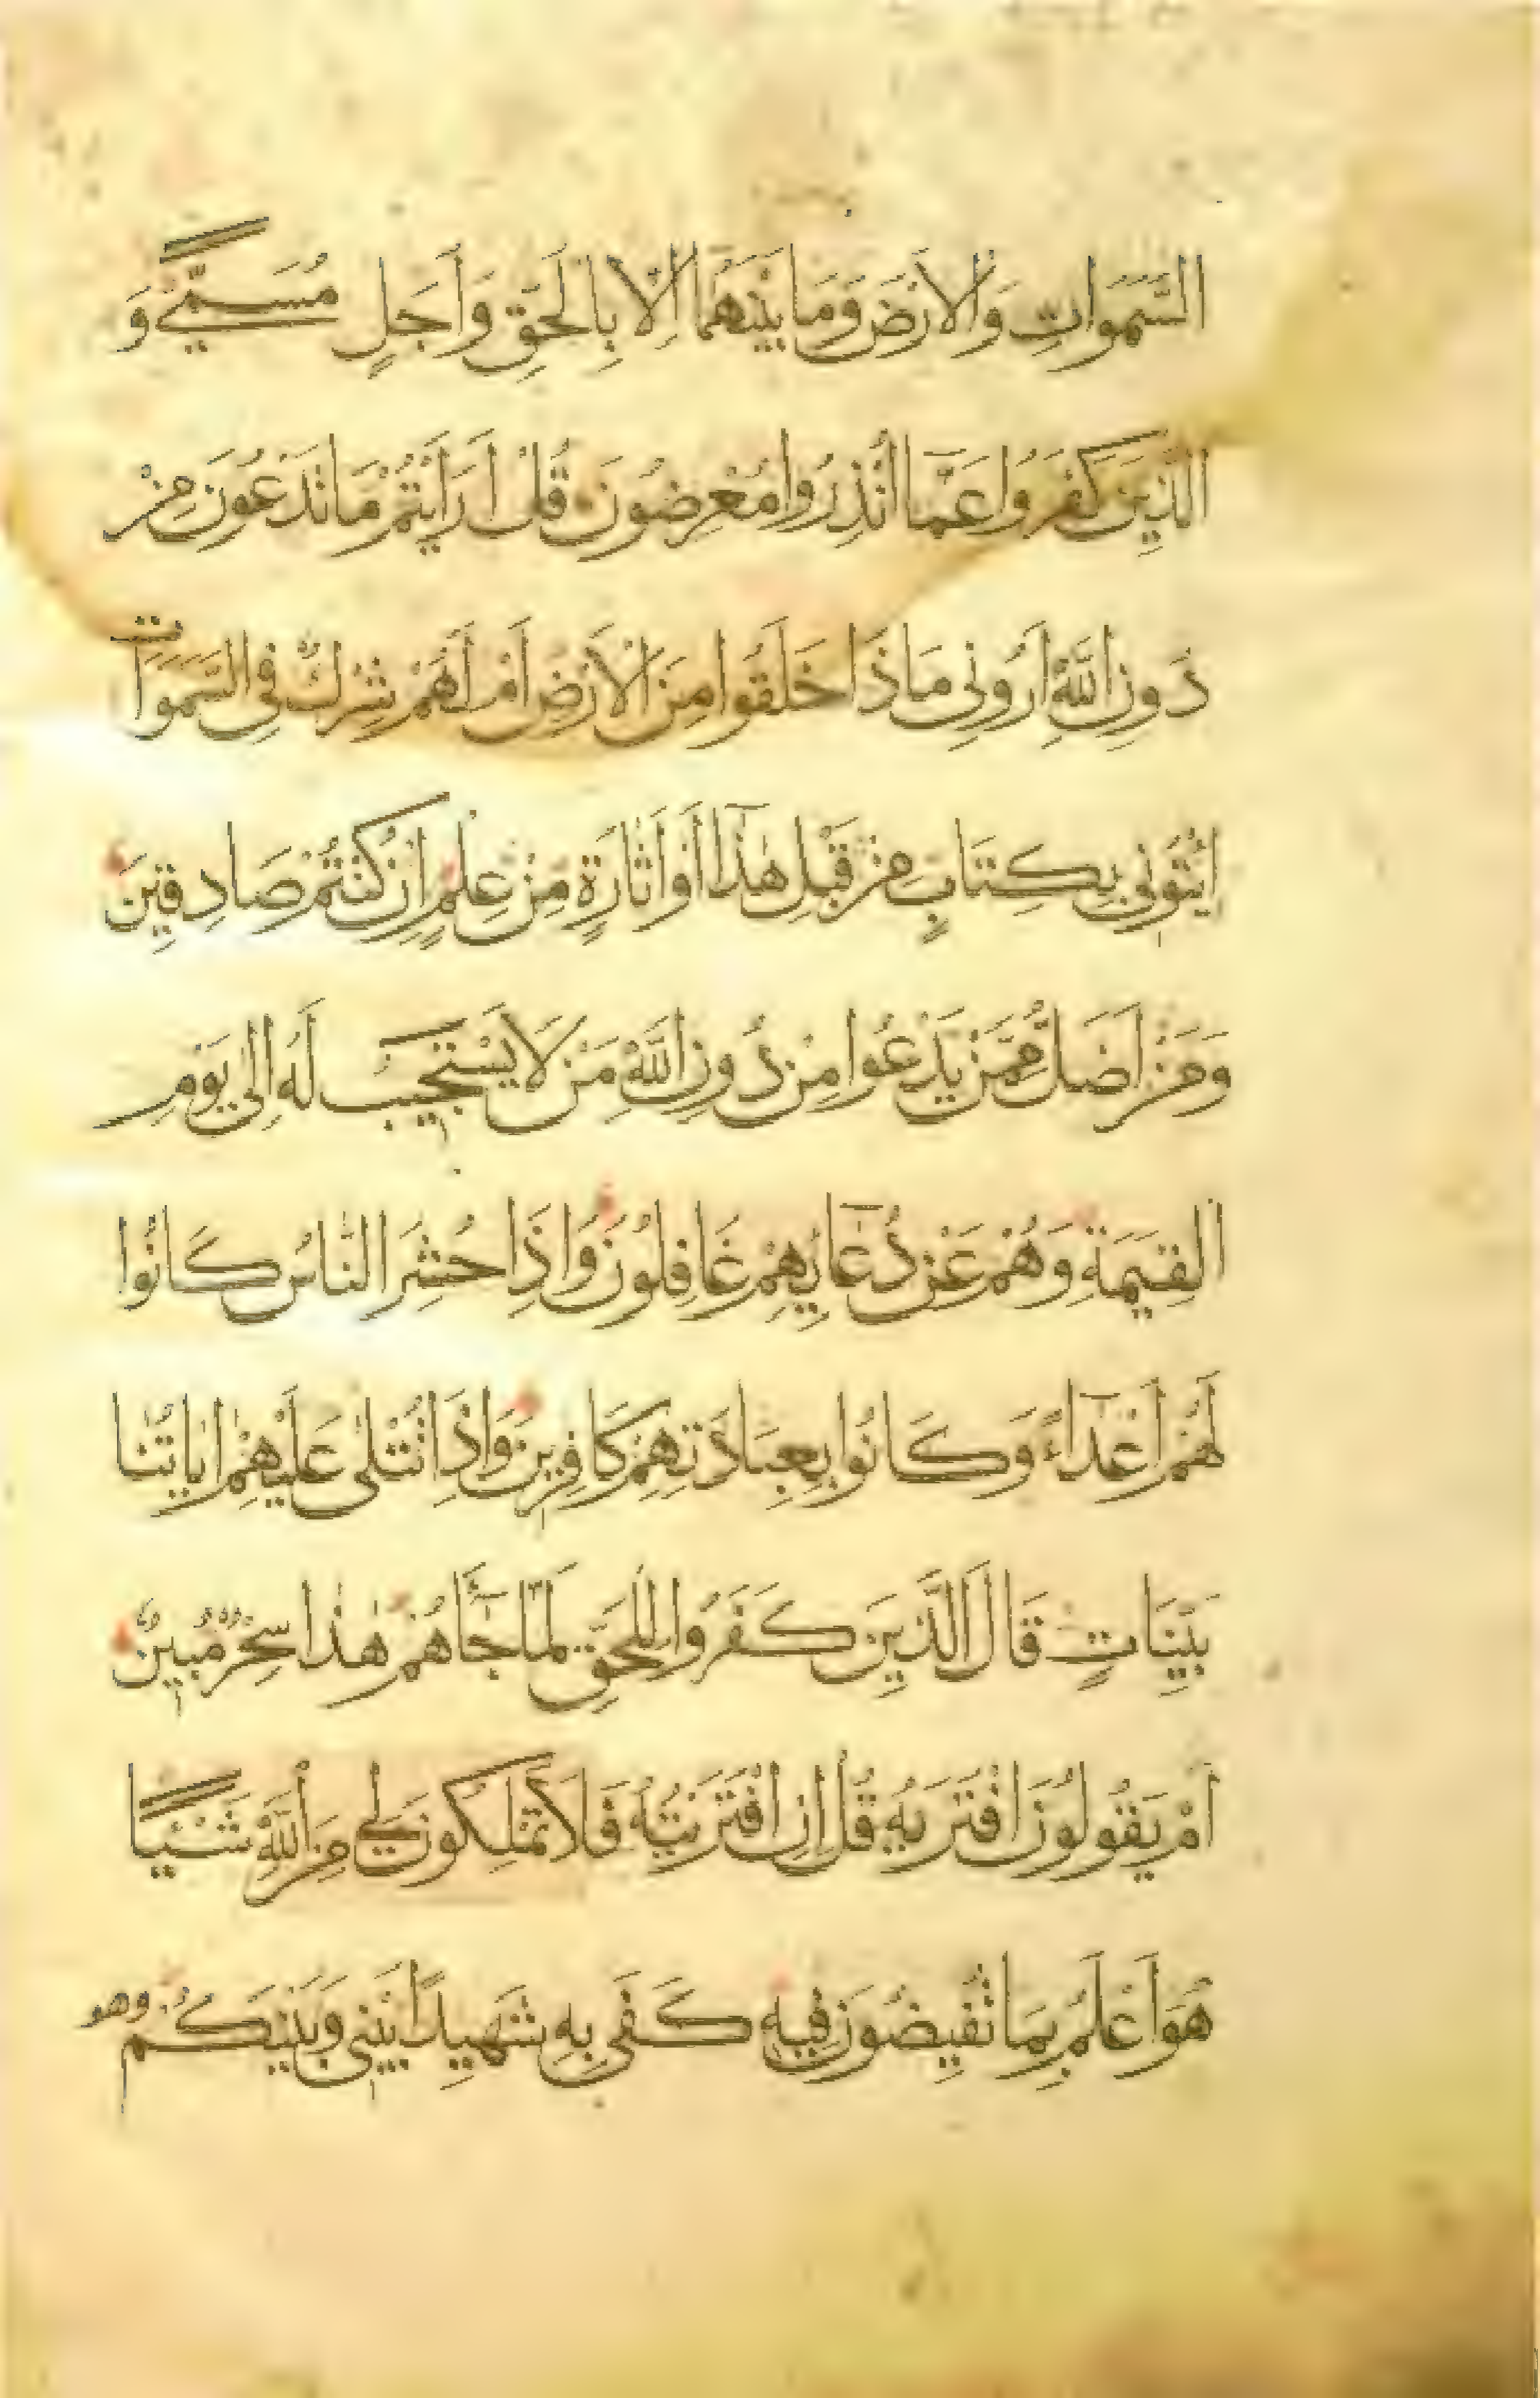 السَّمَوَاتِ وَالْاَرْضَ وَمَا بَيْنَهُمَا اِلَّا بِالْحَقِّ وَاَجَلٍ مُسَمًّى وَ
الَّذِينَ كَفَرُوا عَمَّا اُنْذِرُوا مُعْرِضُونَ قُلْ اَرَاَيْتُمْ مَا تَدْعُونَ مِنْ
دُونِ اللَّهِ اَرُونِى مَاذَا خَلَقُوا مِنَ الْاَرْضِ اَمْ لَهُمْ شِرْكٌ فِى السَّمَوَاتِ
اِيتُونِى بِكِتَابٍ مِنْ قَبْلِ هٰذَا اَوْ اَثَارَةٍ مِنْ عِلْمٍ اِنْ كُنْتُمْ صَادِقِينَ
وَمَنْ اَضَلُّ مِمَّنْ يَدْعُوا مِنْ دُونِ اللَّهِ مَنْ لَا يَسْتَجِيبُ لَهُ اِلَى يَوْمِ
الْقِيَمَةِ وَهُمْ عَنْ دُعَآئِهِمْ غَافِلُونَ وَاِذَا حُشِرَ النَّاسُ كَانُوا
لَهُمْ اَعْدَآءً وَكَانُوا بِعِبَادَتِهِمْ كَافِرِينَ وَاِذَا تُتْلَى عَلَيْهِمْ اٰيَاتُنَا
بَيِّنَاتٍ قَالَ الَّذِينَ كَفَرُوا لِلْحَقِّ لَمَّا جَآءَهُمْ هٰذَا سِحْرٌ مُبِينٌ
اَمْ يَقُولُونَ افْتَرَيهُ قُلْ اِنِ افْتَرَيْتُهُ فَلَا تَمْلِكُونَ لِى مِنَ اللَّهِ شَيْئًا
هُوَ اَعْلَمُ بِمَا تُفِيضُونَ فِيهِ كَفَى بِهِ شَهِيدًا بَيْنِى وَبَيْنَكُمْ وهو